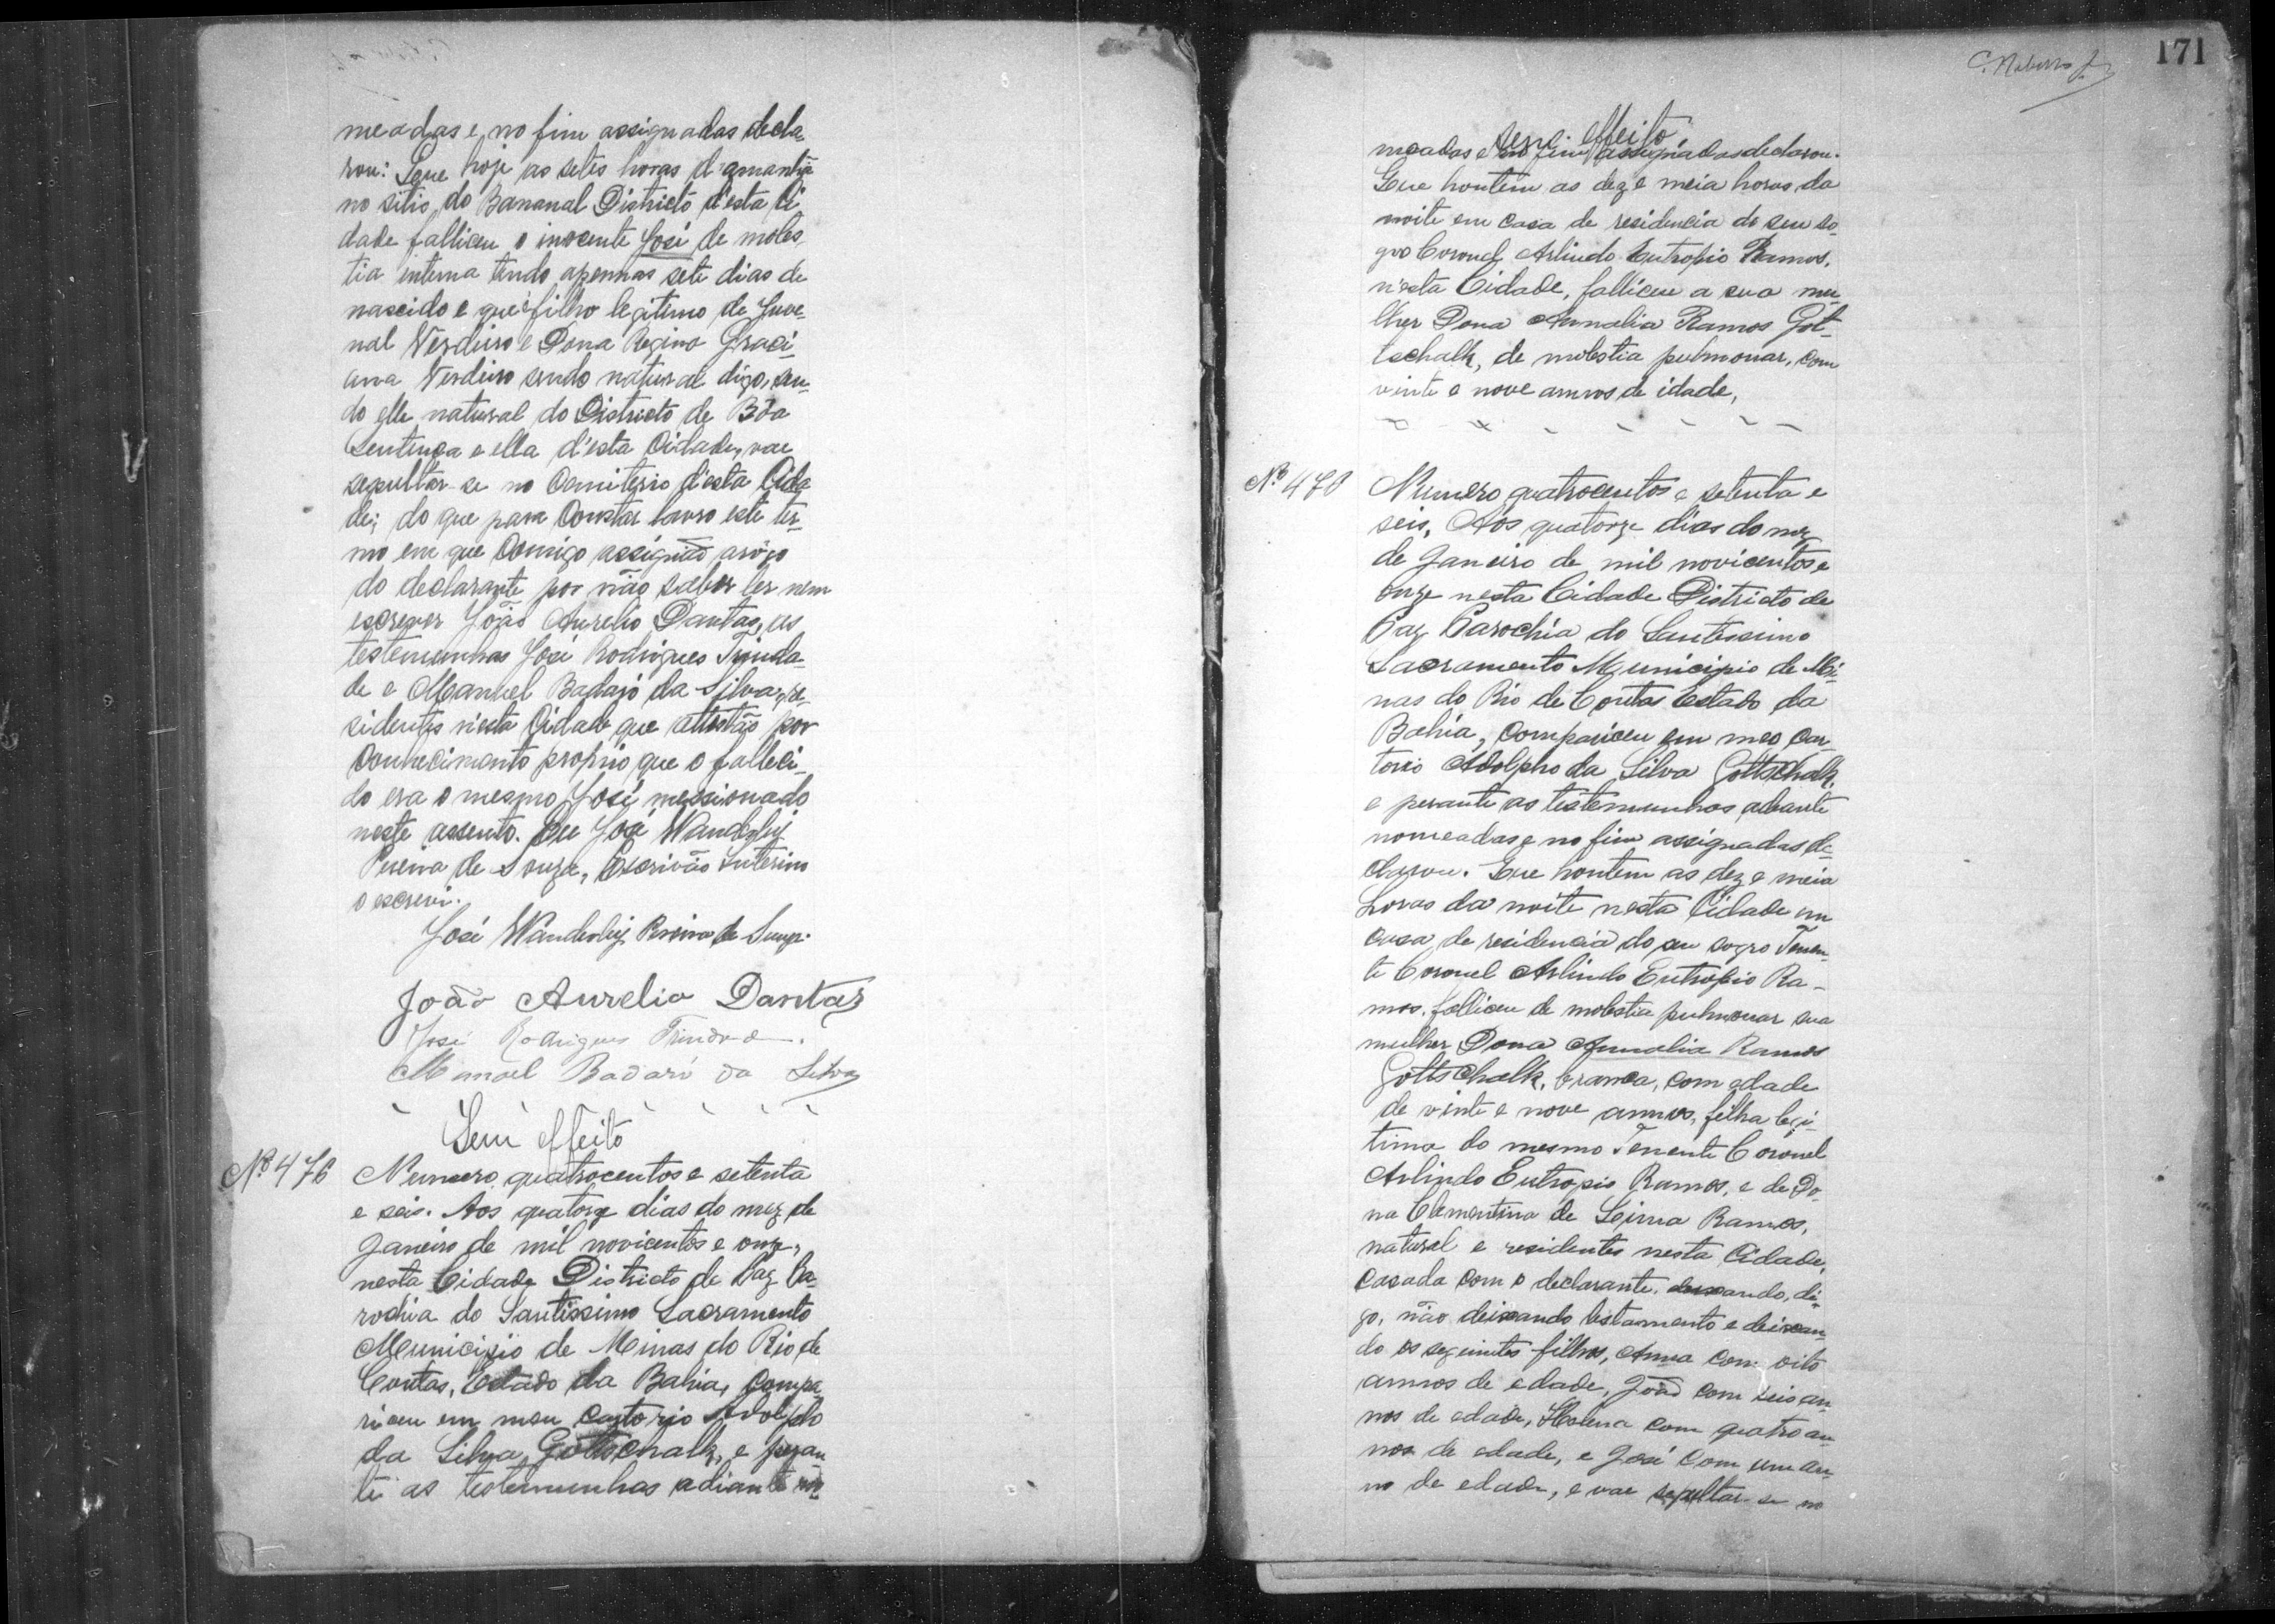 meadas e no fim assignadas decla-
rou: Que hoje as setes horas d'amanhã
no sitio do Bananal Districto d'esta Ci
dade falliceu o inocente José de moles
tia interna tendo apennas sete dias de
nascido e que é filho legitimo de Juve-
nal Verdeiro e Dona Regina Graci-
anna Verdeiro sendo natural digo, sen-
do elle natural do Districto de Bôa
Sentença e ella d'esta Cidade, vae
sepultar-se no Cemiterio d'esta Cida
de; do que para Constar lavro este ter-
mo em que Comigo assignão arôgo
do declarante por não saber ler nem
escrever João Aurelio Dantas, as
testemunhas José Rodrigues Trinda-
de e Manuel Badaró da Silva, re-
sidentes n'esta Cidade que attestão por
Conhecimento proprio que o falleci-
do era o mesmo José messionado
neste assento. Eu José Wanderley
Pereira de Souza, Escrivão Interino
o escrevi.
José Wanderley Pereira de Souza.
João Aurelio Dantas
José Rodrigues Trindade.
Manoel Badaró da Silva
Sem effeito
Nº 476 Numero quatrocentos e setenta
e seis. Aos quatorze dias do mez de
Janeiro de mil novicentos e onze,
nesta Cidade Districto de Paz Pa-
rochia do Santissimo Sacramento
Municipio de Minas do Rio de
Contas, Estado da Bahia, Compa
riceu em meu Cartorio Adolpho
da Silva Gottschalk, e peran
te as testemunhas adiante no-
171
Sem effeito
meadas e no fim assignadas declarou.
Que hontem as dez e meia horas da
noite em casa de residencia do seu so-
gro Coronel Arlindo Eutropio Ramos,
n'esta Cidade, falliceu a sua mu-
lher Dona Annalia Ramos Got-
tschalk, de molestia pulmonar, com
vinte e nove annos de idade,
Nº 476 Numero quatrocentos e setenta e
seis. Aos quatorze dias do mez
de Janeiro de mil novicentos e
onze nesta Cidade Districto de
Paz Parochia do Santissimo
Sacramento Municipio de Mi-
nas do Rio de Contas Estado da
Bahia, Compariceu em meo Car
torio Adolpho da Silva Gottschalk,
e perante as testemunhas adiante
nomeadas e no fim assignadas de-
clarou. Que hontem as dez e meia
horas da noite nesta Cidade em
casa de residencia do seu sogro Tenen-
te Coronel Arlindo Eutropio Ra-
mos, falliceu de molestia pulmonar sua
mulher Dona Annalia Ramos
Gottschalk, branca, com edade
de vinte e nove annos, filha legi-
tima do mesmo Tenente Coronel
Arlindo Eutropio Ramos, e de Do-
na Clementina de Ramos,
natural e residentes nesta Cidade,
Casada Com o declarante, deixando, di-
go, não deixando testamento e deixan-
do os seguintes filhos, Anna Com oito
annos de edade, João com seis an-
nos de edade, Helena com quatro an-
nos de edade, e José Com um an-
no de edade, e vae sepultar-se no